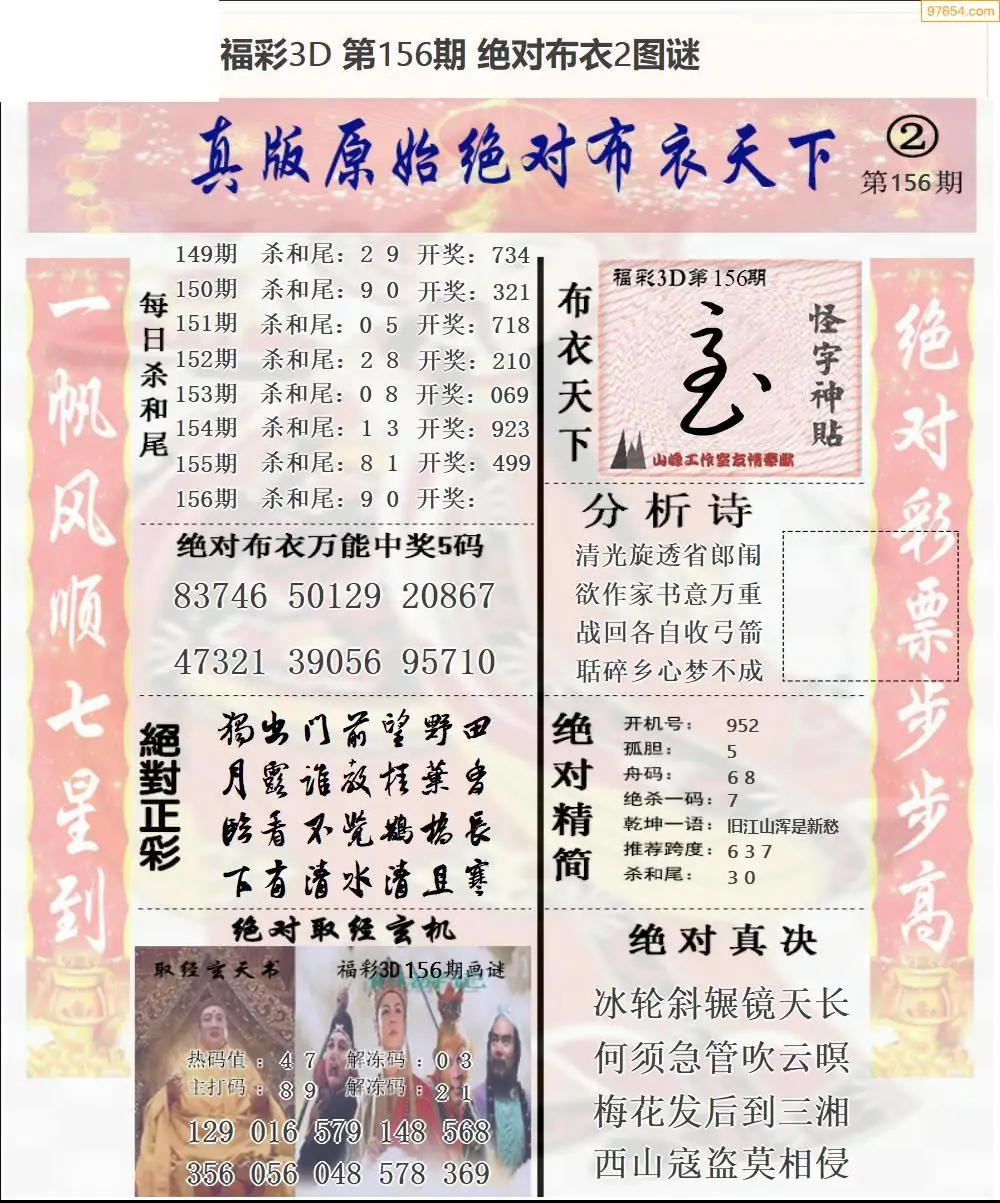 97654.com
福彩3D 第156期 绝对布衣2图谜
真版原始绝对布衣天下
②
第156期
一帆风顺七星到
每日杀和尾
149期 杀和尾：2 9 开奖：734
150期 杀和尾：9 0 开奖：321
151期 杀和尾：0 5 开奖：718
152期 杀和尾：2 8 开奖：210
153期 杀和尾：0 8 开奖：069
154期 杀和尾：1 3 开奖：923
155期 杀和尾：8 1 开奖：499
156期 杀和尾：9 0 开奖：
绝对布衣万能中奖5码
83746 50129 20867
47321 39056 95710
絕對正彩
獨出门前望野田
月露谁教桂葉香
臨看不觉鵲橋長
下有清水清且寒
绝对取经玄机
取经玄天书
福彩3D156期画谜
热码值：4 7 解冻码：0 3
主打码：8 9 解冻码：2 1
129 016 579 148 568
356 056 048 578 369
布衣天下
福彩3D第156期
怪字神貼
山峰工作室友情奉献
分析诗
清光旋透省郎闱
欲作家书意万重
战回各自收弓箭
聒碎乡心梦不成
绝对精简
开机号： 952
孤胆： 5
舟码： 6 8
绝杀一码：7
乾坤一语：旧江山浑是新愁
推荐跨度：6 3 7
杀和尾： 3 0
绝对真决
冰轮斜辗镜天长
何须急管吹云暝
梅花发后到三湘
西山寇盗莫相侵
绝对彩票步步高